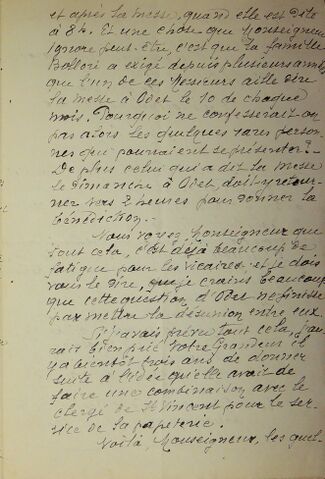 et après la messe, quand elle est dite
à 8h. Et une chose que Monseigneur
ignore peut-être, c'est que la famille
Bolloré a exigé depuis plusieurs années
que l'un de ces Messieurs aille dire
la messe à Odet le 10 de chaque
mois. Pourquoi ne confesserait-on
pas alors les quelques rares person
nes qui pourraient se présenter?
De plus celui qui a dit la messe
le dimanche à Odet, doit y retour-
ner vers 2 heures pour donner la
bénédiction.
Vous voyez, Monseigneur que
tout cela, c'est déjà beaucoup de
fatigue pour les vicaires, et je dois
vous le dire, que je crains beaucoup
que cette question d'Odet ne finisse
par mettre la désunion entre eux.
Si j'avais prévu tout cela, j'au
rais bien prié Votre Grandeur il
y a bientôt trois ans de donner
suite à l'idée qu'elle avait de
faire une combinaison avec le
clergé de St Vincent pour le ser-
vice de la papeterie.
Voilà, Monseigneur, les quel-